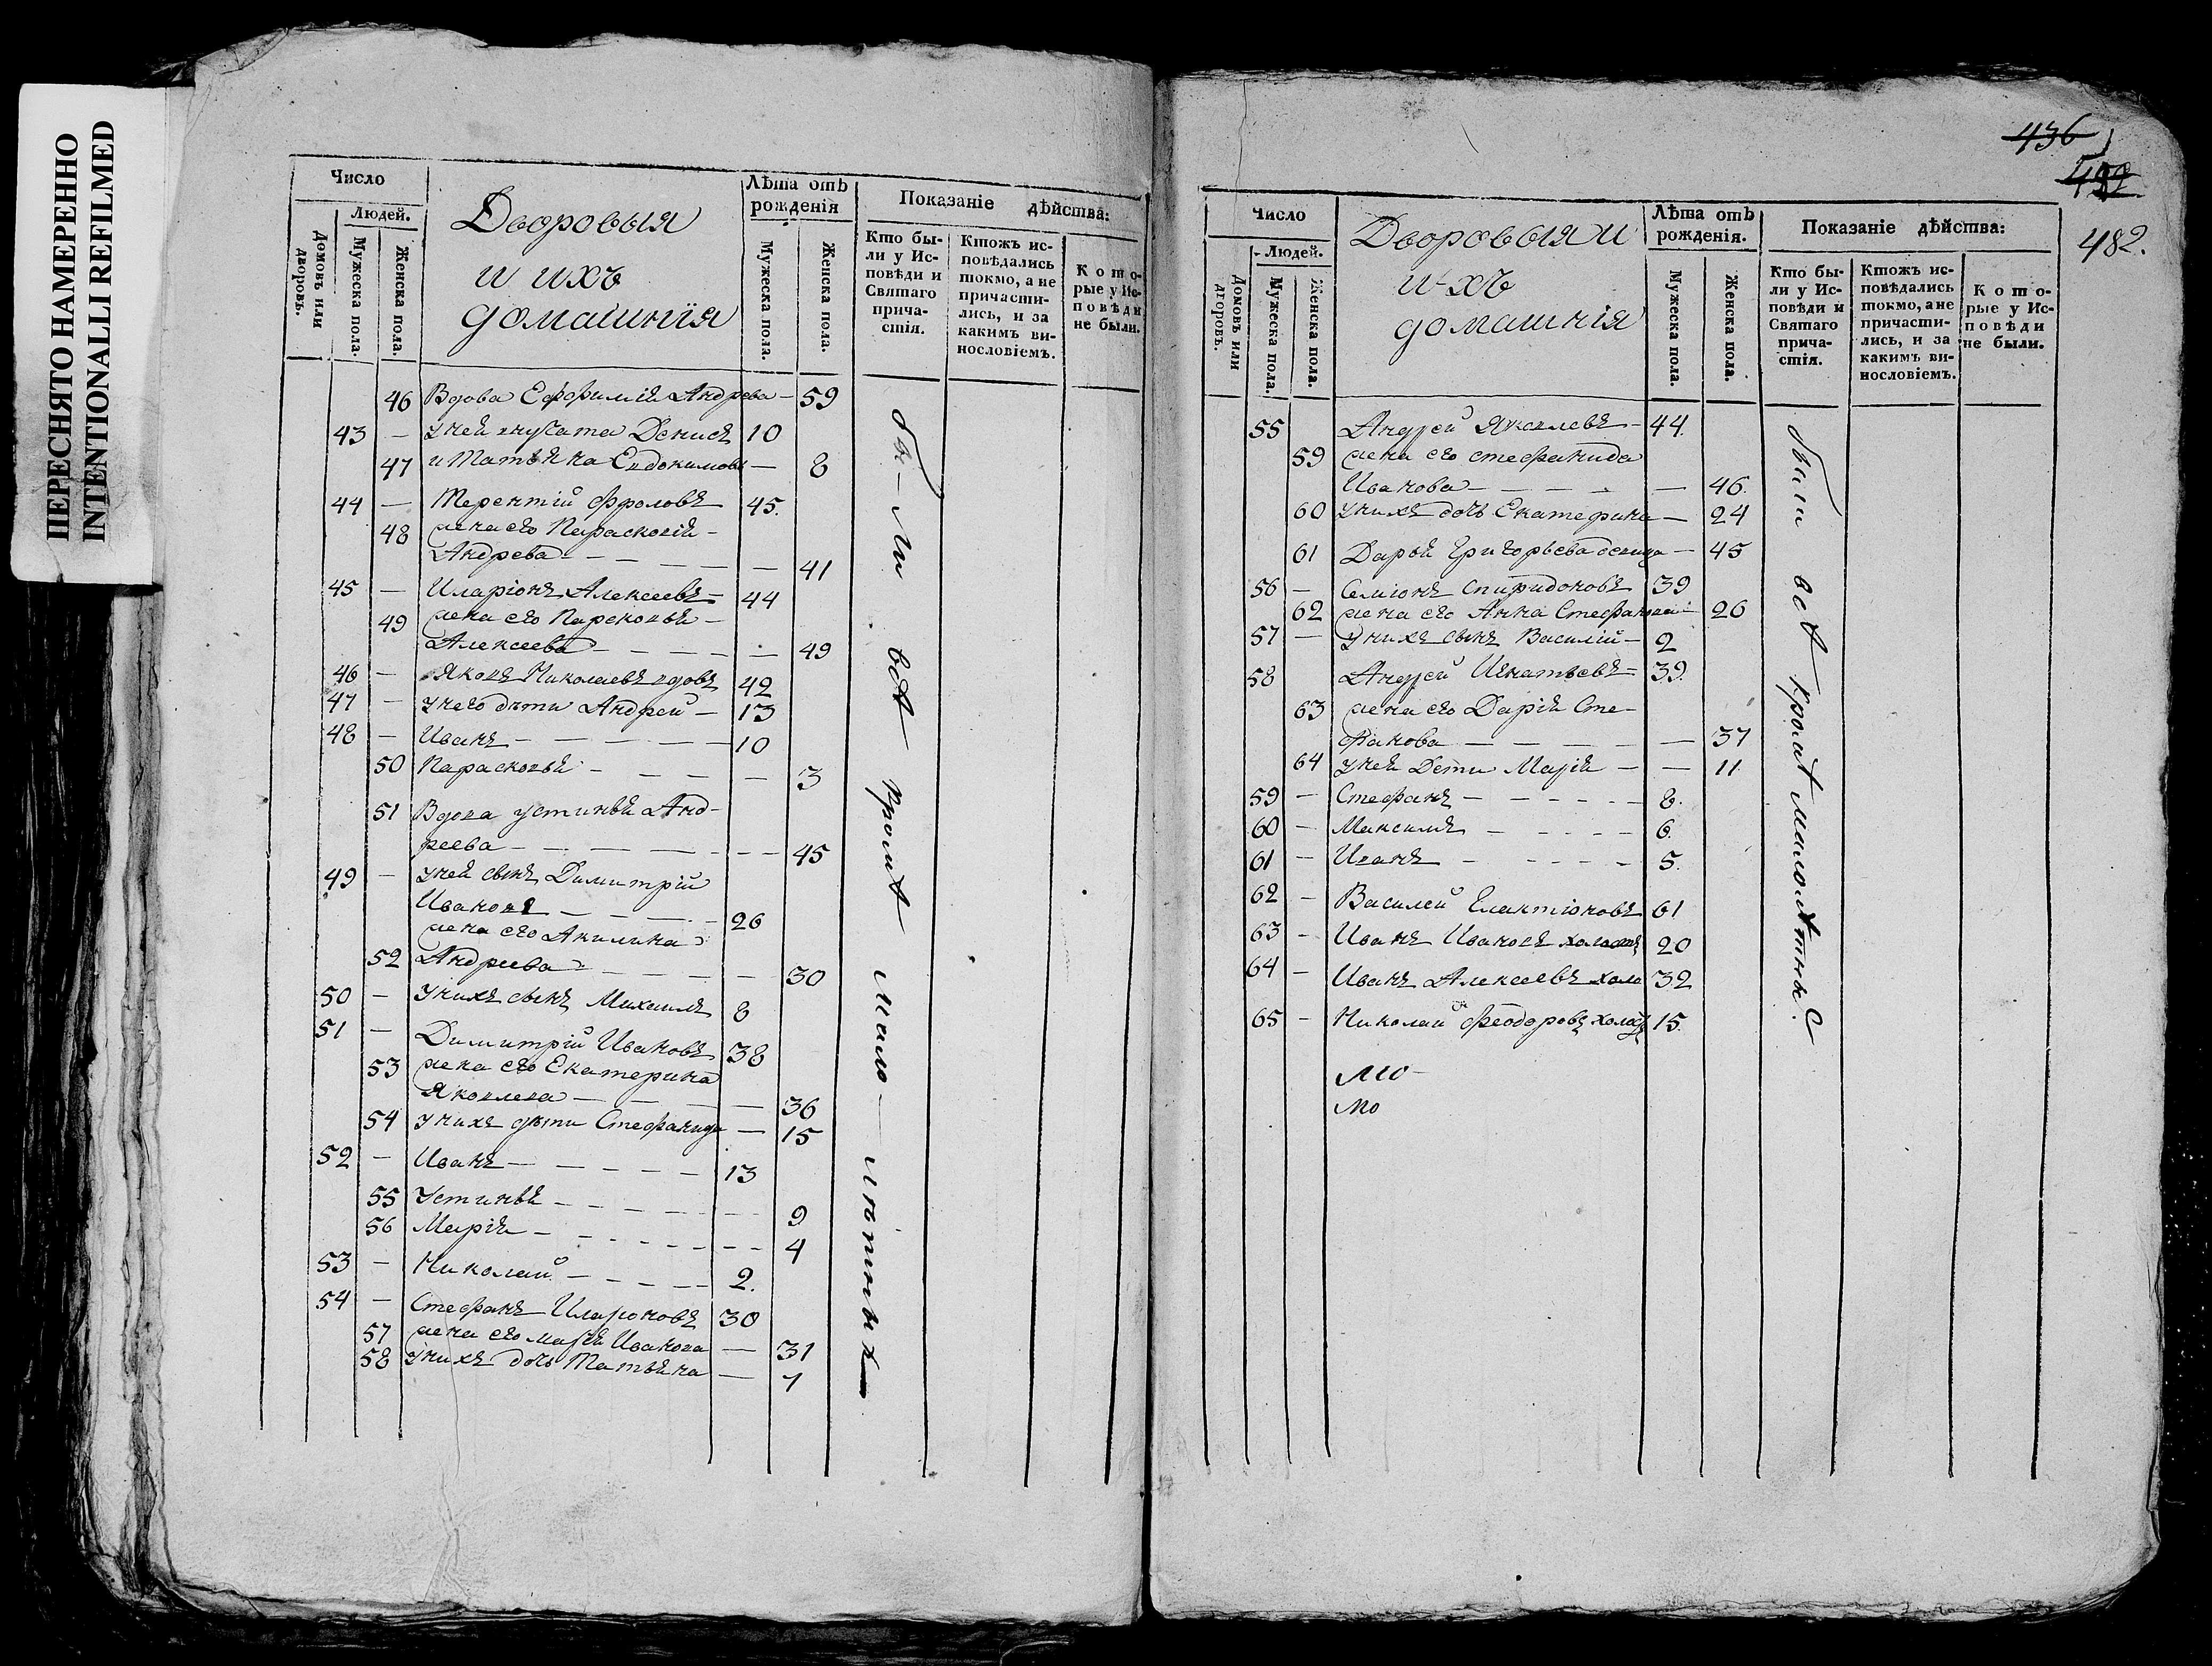 ПЕРЕСНЯТО НАМЕРЕННО
INTENTIONALLI REFILMED
Число
Людей.
Домовъ или дворовъ.
Мужеска пола.
Женска пола.
Дворовыя
и ихъ
домашнія
Лѣта отъ рожденія
Мужеска пола.
Женска пола.
Показаніе дѣйства:
Кто бы-
ли у Ис-
повѣди и
Святаго
прича-
стія.
Ктожъ ис-
повѣдались
токмо, а не
причасти-
лись, и за
какимъ ви-
нословіемъ.
Кото-
рые у Ис-
повѣди
не были.
46 Вдова Ефѳимія Андрева - 59
43 - у ней внучата Денисъ 10
47 и Татьяна Евдокимовы - 8
44 - Терентій Фроловъ 45.
48 жена его Параскогія -
Андрева - - - - - 41
45 - Иларіонъ Алексеевъ - 44
49 жена его Парсковья -
Алексеева - - - - - 49
46 - Яковъ Николаевъ вдовъ 42
47 - у него дѣти Андрей - 13
48 - Иванъ - - - - - 10
50 Парасковья - - - - - 3
51 Вдова Устинья Анд-
реева - - - - - 45
49 - у ней сынъ Димитрій
Ивановъ - - - - 26
жена его Акилина
52 Андреева - - - - - 30
50 - у нихъ сынъ Михаилъ 8
51 - Димитрій Ивановъ 38
53 жена его Екатерина
Яковлева - - - - 36
54 у нихъ дѣти Стефанида - 15
52 - Иванъ - - - - - 13
55 Устинья - - - - - 9
56 Марія - - - - - 4
53 - Николай - - - - 2.
54 - Стефанъ Иларіоновъ 30
57 жена его Марія Иванова - 31
58 у нихъ дочь Татьяна - 1
бы-ли всѣ кромѣ мало-лѣтныхъ
436
482.
Число
Людей.
Домовъ или дворовъ.
Мужеска пола.
Женска пола.
Дворовыя и
и-хъ
домашнія
Лѣта отъ рожденія.
Мужеска пола.
Женска пола.
Показаніе дѣйства:
Кто бы-
ли у Ис-
повѣди и
Святаго
прича-
стія.
Ктожъ ис-
повѣдались
токмо, а не
причасти-
лись, и за
какимъ ви-
нословіемъ.
Кото-
рые у Ис-
повѣди
не были.
55 Андрей Яковлевъ - 44.
59 жена его Стефанида
Иванова - - - - - 46.
60 у нихъ дочь Екатерина - 24
61 Дарья Григорьева девица - 45
56 - Семіонъ Спиридоновъ 39
62 жена его Анна Стефанова - 26
57 - у нихъ сынъ Василій - 2
58 Андрей Игнатьевъ - 39.
63 жена его Дарія Сте-
фанова - - - - - 37
64 у ней Дети Марія - - 11
59 - Стефанъ - - - - - 8.
60 - Максимъ - - - - 6.
61 - Иванъ - - - - - 5.
62 - Василей Галактіоновъ 61
63 - Иванъ Ивановъ холостъ 20
64 - Иванъ Алексеевъ холо 32
65 - Николай Феодоровъ холос 15.
мо-
мо
были всѣ кромѣ малолѣтныхъ